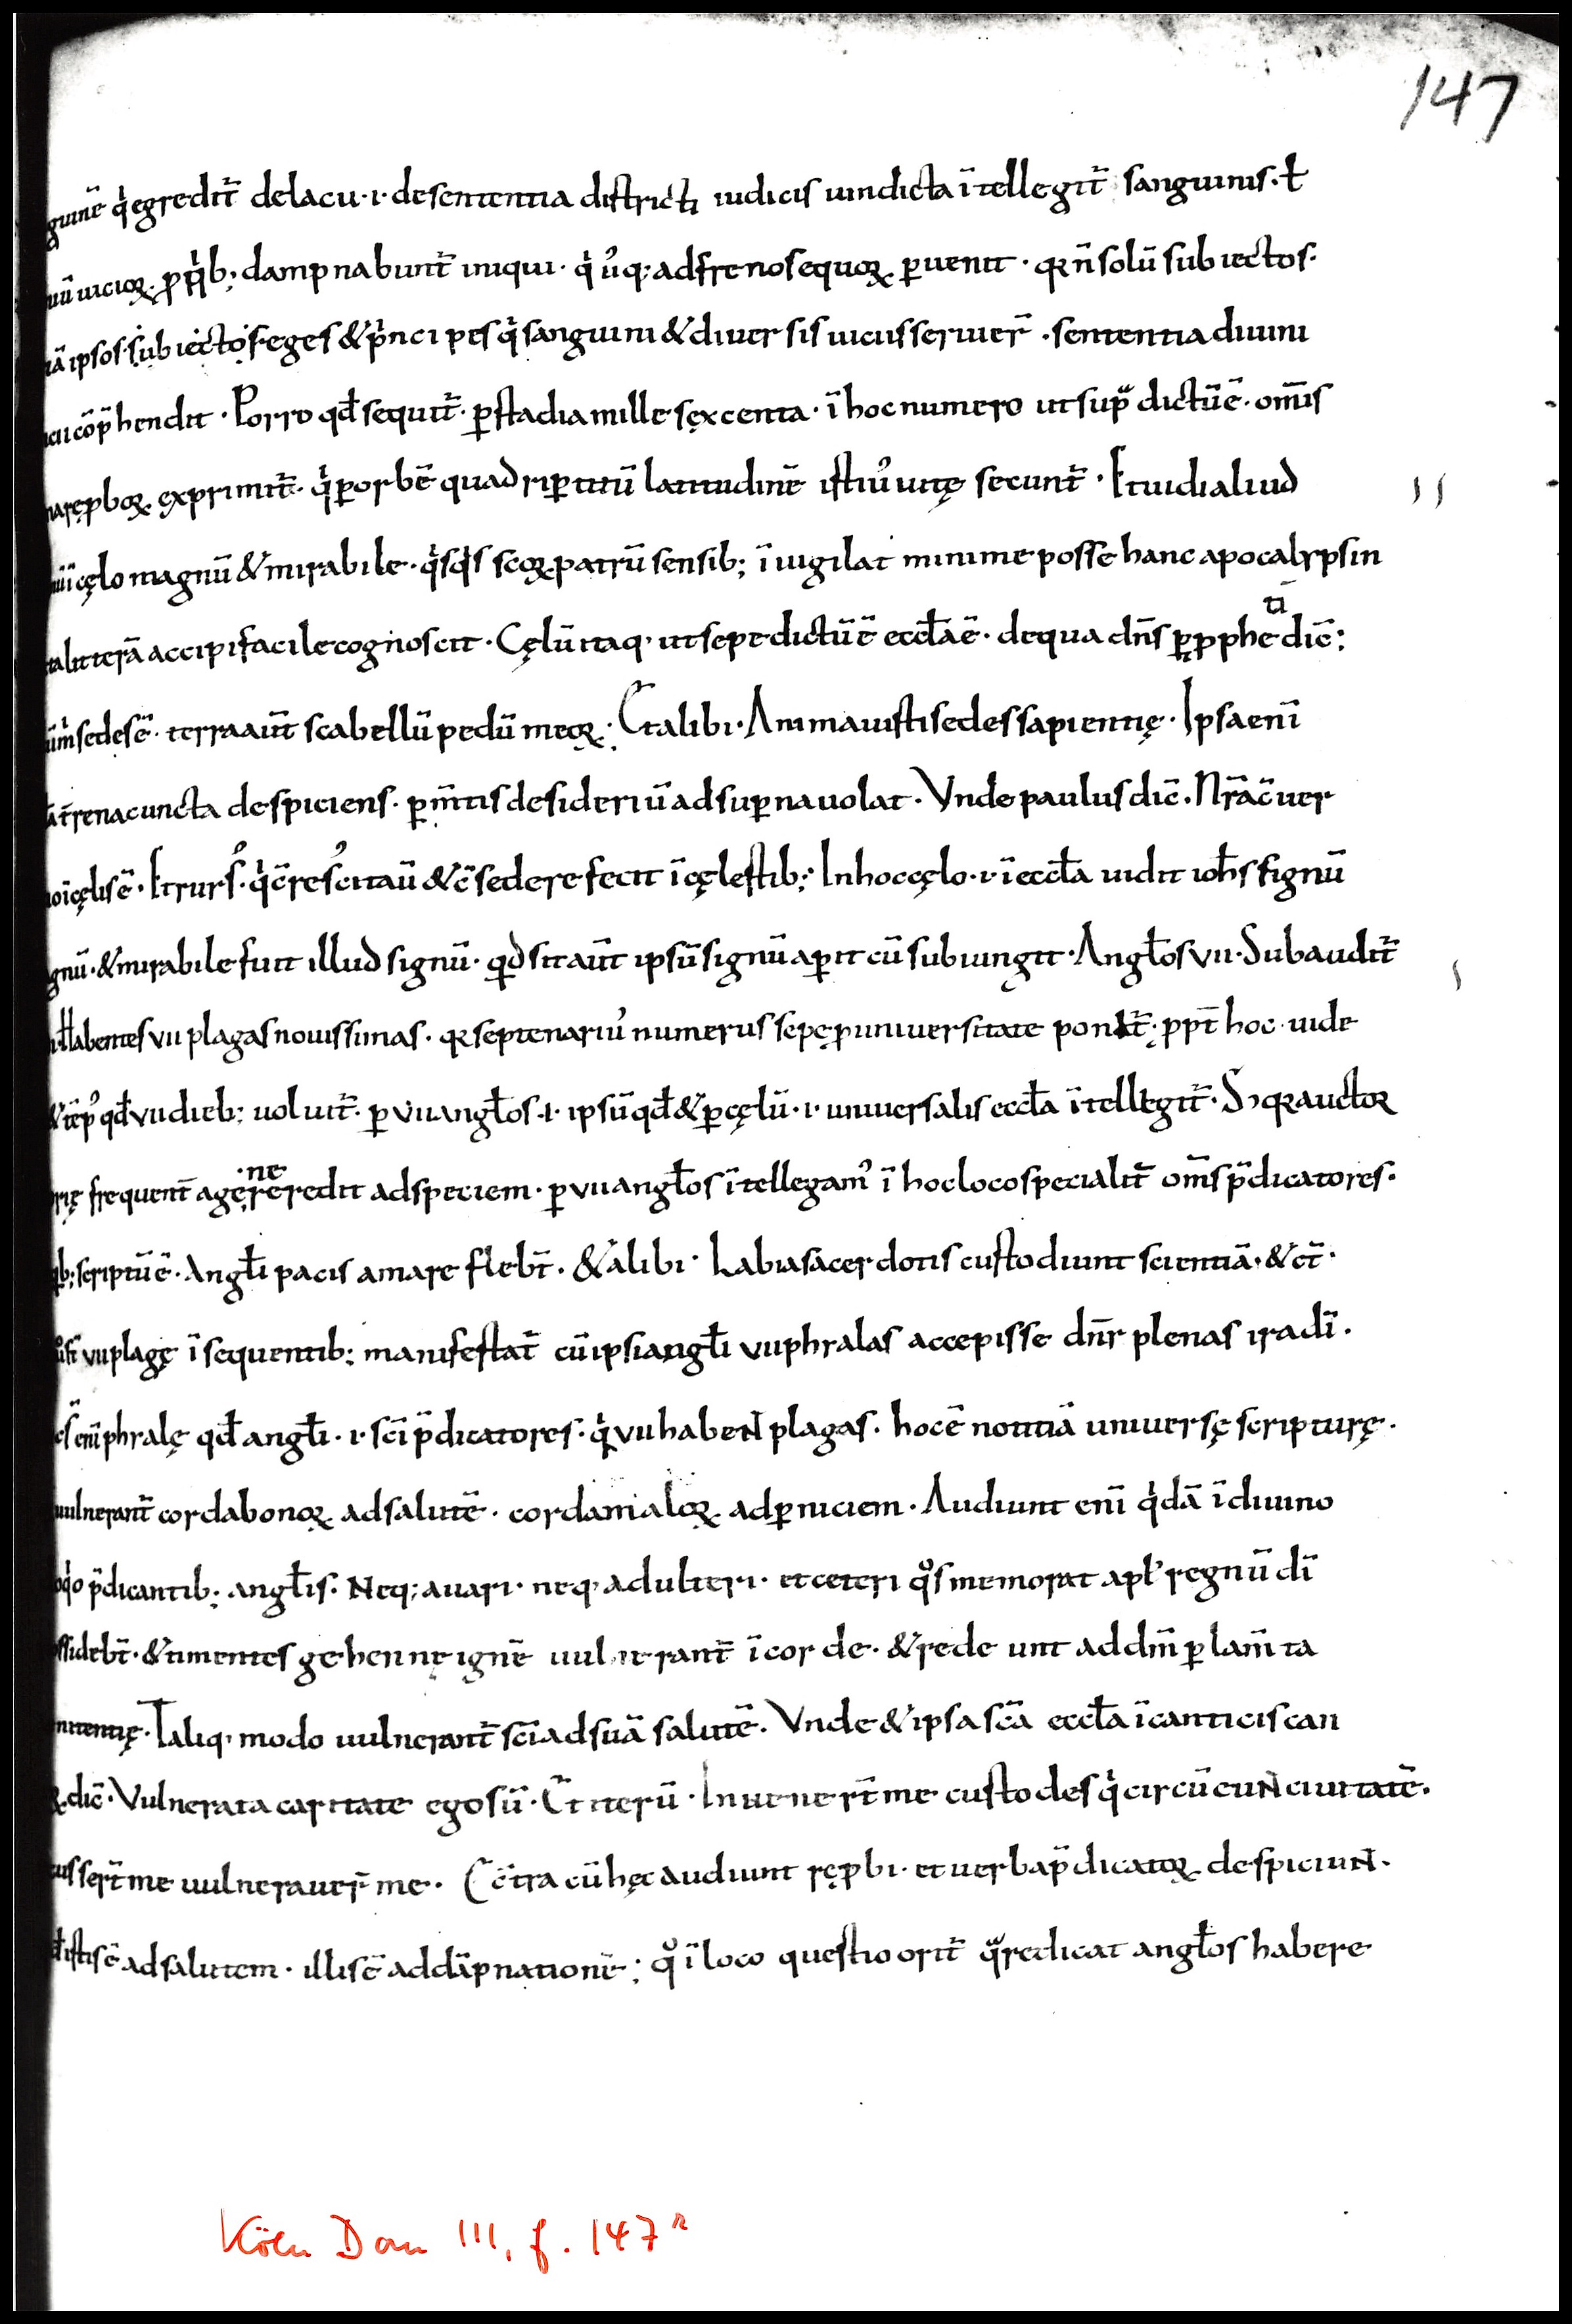 147
guinē qͥ egredit᷑ de lacu ·i· de sententia districti iudicis uindicta ītellegit᷑ sanguinis · ł
uū uicioꝝ · ꝓ qͥb; dampnabunt᷑ iniqui · qͥ usq; ad freno sequoꝝ ꝑuenit · qꝛ ñ solū subiectos ·
iā ipsos subiectos reges & pͥncipes qͥ sanguini & diuersis uiciis seruier̄ · sententia diuini
cōp̄hendit · Porro qđ sequit᷑ · ꝑ stadia mille sęxcenta · ī hoc numero ut supᷓ dictū ē · om̄is
ręꝓboꝝ exprimit᷑ · qͥ ꝑ orbē quadriꝑtitū latitudinē istiꝰ uitę secunt᷑ · Et uidi aliud
ī cęlo magnū & mirabile · qͥsqͥs scōꝝ patrū sensib; īuigilat minime posse hanc apocalypsin
litterā accipi facile cognoscit · Cęlū itaq; ut sepe dictū ē ecctā ē · de qua dn̄s ꝑ ꝓphetā dic̄ ;
m̊ sedes ē · terra aūt scabellū pedū meoꝝ ; Et alibi · Anima iusti sedes sapientię · Ipsa enī
t̄rena cuncta despiciens · ꝑ m̄tis desideriū ad suꝑna uolat · Vnde paulus dic̄ · Nr̄a c̄uer
ī cęlis ē · Et rursꝰ · qͥ c̄resꝰcitauı̄ & c̄sedere fecit ī cęlestib; In hoc cęlo ·i· ī ecctā uidit ioh̄s signū
gnū · & mirabile fuit illud signū · qđ sit aūt ipsū signū aꝑit cū subiungit · Angtos vii · Subaudit᷑
Habentes vii plagas nouissimas · qꝛ septenariꝰ numerus sepę ꝓ uniuersitate ponit᷑ ; ꝓpt̄ hoc uide
& tēpꝰ qđ vii dieb; uoluit᷑ · ꝑ vii angtos ·i· ipsū qđ & ꝑ cęlū ·i· uniuersalis ecctā ītellegit᷑ · S; qꝛ auctor
rię frequent̄ a genere redit ad speciem · ꝑ vii angtos ītellegamꝰ ī hoc loco specialit᷑ om̄s p̄dicatores ·
b; scriptū ē · Angti pacis amare flebt̄ · & alibi · Labia sacerdotis custodiunt scientiā · & ct̄ ·
vii plagę ī sequentib; manifestat᷑ cū ipsi angti vii phialas accepisse dn̄r plenas ira dī ·
enī phialę qđ angti ·i· scī p̄dicatores · qͥ vii habeɴt plagas · hoc ē notitiā uniuersę scripturę ·
uulnerant᷑ corda bonoꝝ ad salutē · corda maloꝝ ad ꝑniciem · Audiunt enī qͥdā ī diuino
qͥo p̄dicantib; angtis · Neq; auari · neq; adulteri · et ceteri qͦs memorat apt̄s regnū dī
ssidebt̄ · & timentes gehennę ignē uulnerant᷑ ī corde · & redeunt ad dn̄m ꝑ lam̄ta
nitentię · Taliq; modo uulnerant᷑ scī ad suā salutē · Vnde & ipsa scā ecctā ī canticis can
dic̄ · Vulnerata caritate ego sū · Et iterū · Inuenert̄ me custodes qͥ circūeuɴt ciuitatē ·
cussert̄ me uulnerauer̄ me · C̄tra cū hęc audiunt ręꝓbi · et uerba p̄dicatoꝝ despiciuɴt ·
istis ē ad salutem · illis ē ad dāpnationē ; qͦ ī loco questio orit᷑ qᷓre dicat angtos habere
Köln Dom 111, f. 147ʳ